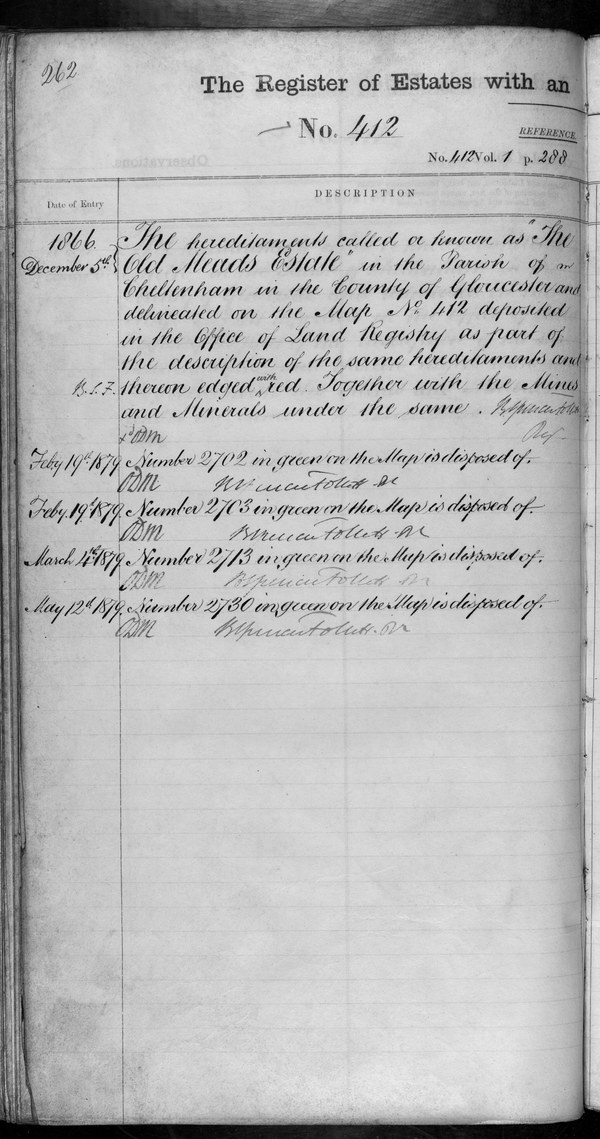 262
The Register of Estates with an
No. 412
REFERENCE
No. 412 Vol. 1 p. 288
Date of Entry
DESCRIPTION
1866. The hereditaments called or known as "The
December 5th Old Meads Estate" in the Parish of
Cheltenham in the County of Gloucester and
delineated on the Map No. 412 deposited
in the Office of Land Registry as part of
the description of the same hereditaments and
B.S.F. thereon edged with red. Together with the Mines
and Minerals under the same. B Spencer Follett
Reg.
ODM
Feby 19th 1879 Number 2702 in green on the Map is disposed of.
ODM BSpencer Follett
Feby. 19th 1879. Number 2703 in green on the Map is disposed of.
ODM BSpencer Follett
March 4th 1879. Number 2713 in green on the Map is disposed of.
ODM BSpencer Follett
May 12th 1879. Number 2730 in green on the Map is disposed of.
ODM BSpencer Follett